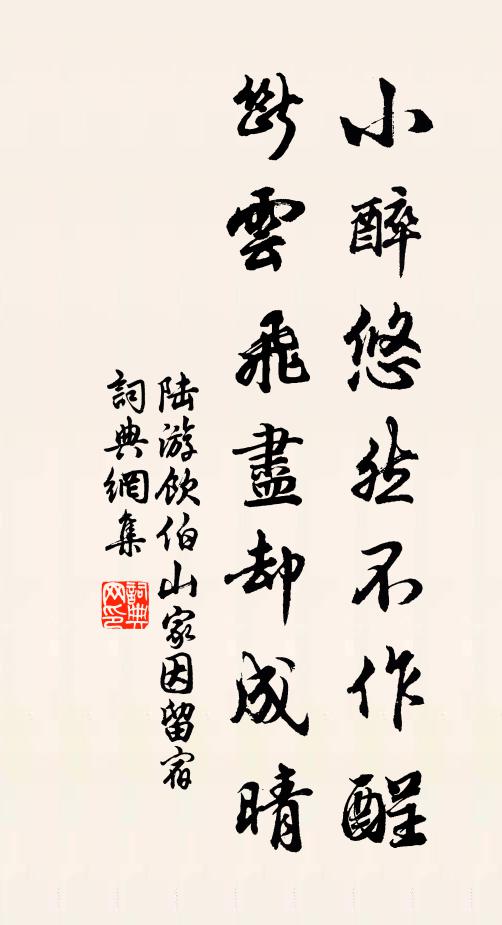 小醉悠然不作酲
斷雲飛盡却成晴
陆游飲伯山家因留宿
詞典網集
詞典网印